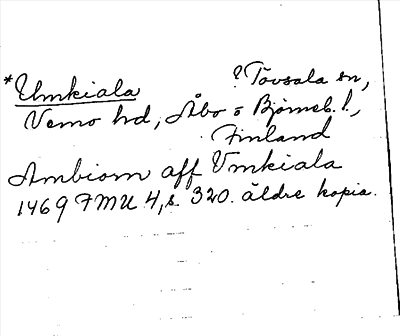 *Umkiala ? Tövsala sn,
Vemo hd, Åbo o Björneb. l.,
Finland
Ambiorn aff Vmkiala
1469 FMU 4, s. 320. äldre kopia.